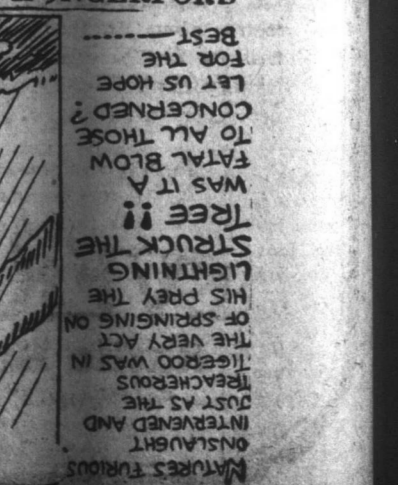 NATURE'S FURIOUS
ONSLAUGHT
INTERVENED AND
JUST AS THE
TREACHEROUS
TIGEROO WAS IN
THE VERY ACT
OF SPRINGING ON
HIS PREY THE
LIGHTNING
STRUCK THE
TREE !!
WAS IT A
FATAL BLOW
TO ALL THOSE
CONCERNED?
LET US HOPE
FOR THE
BEST -------